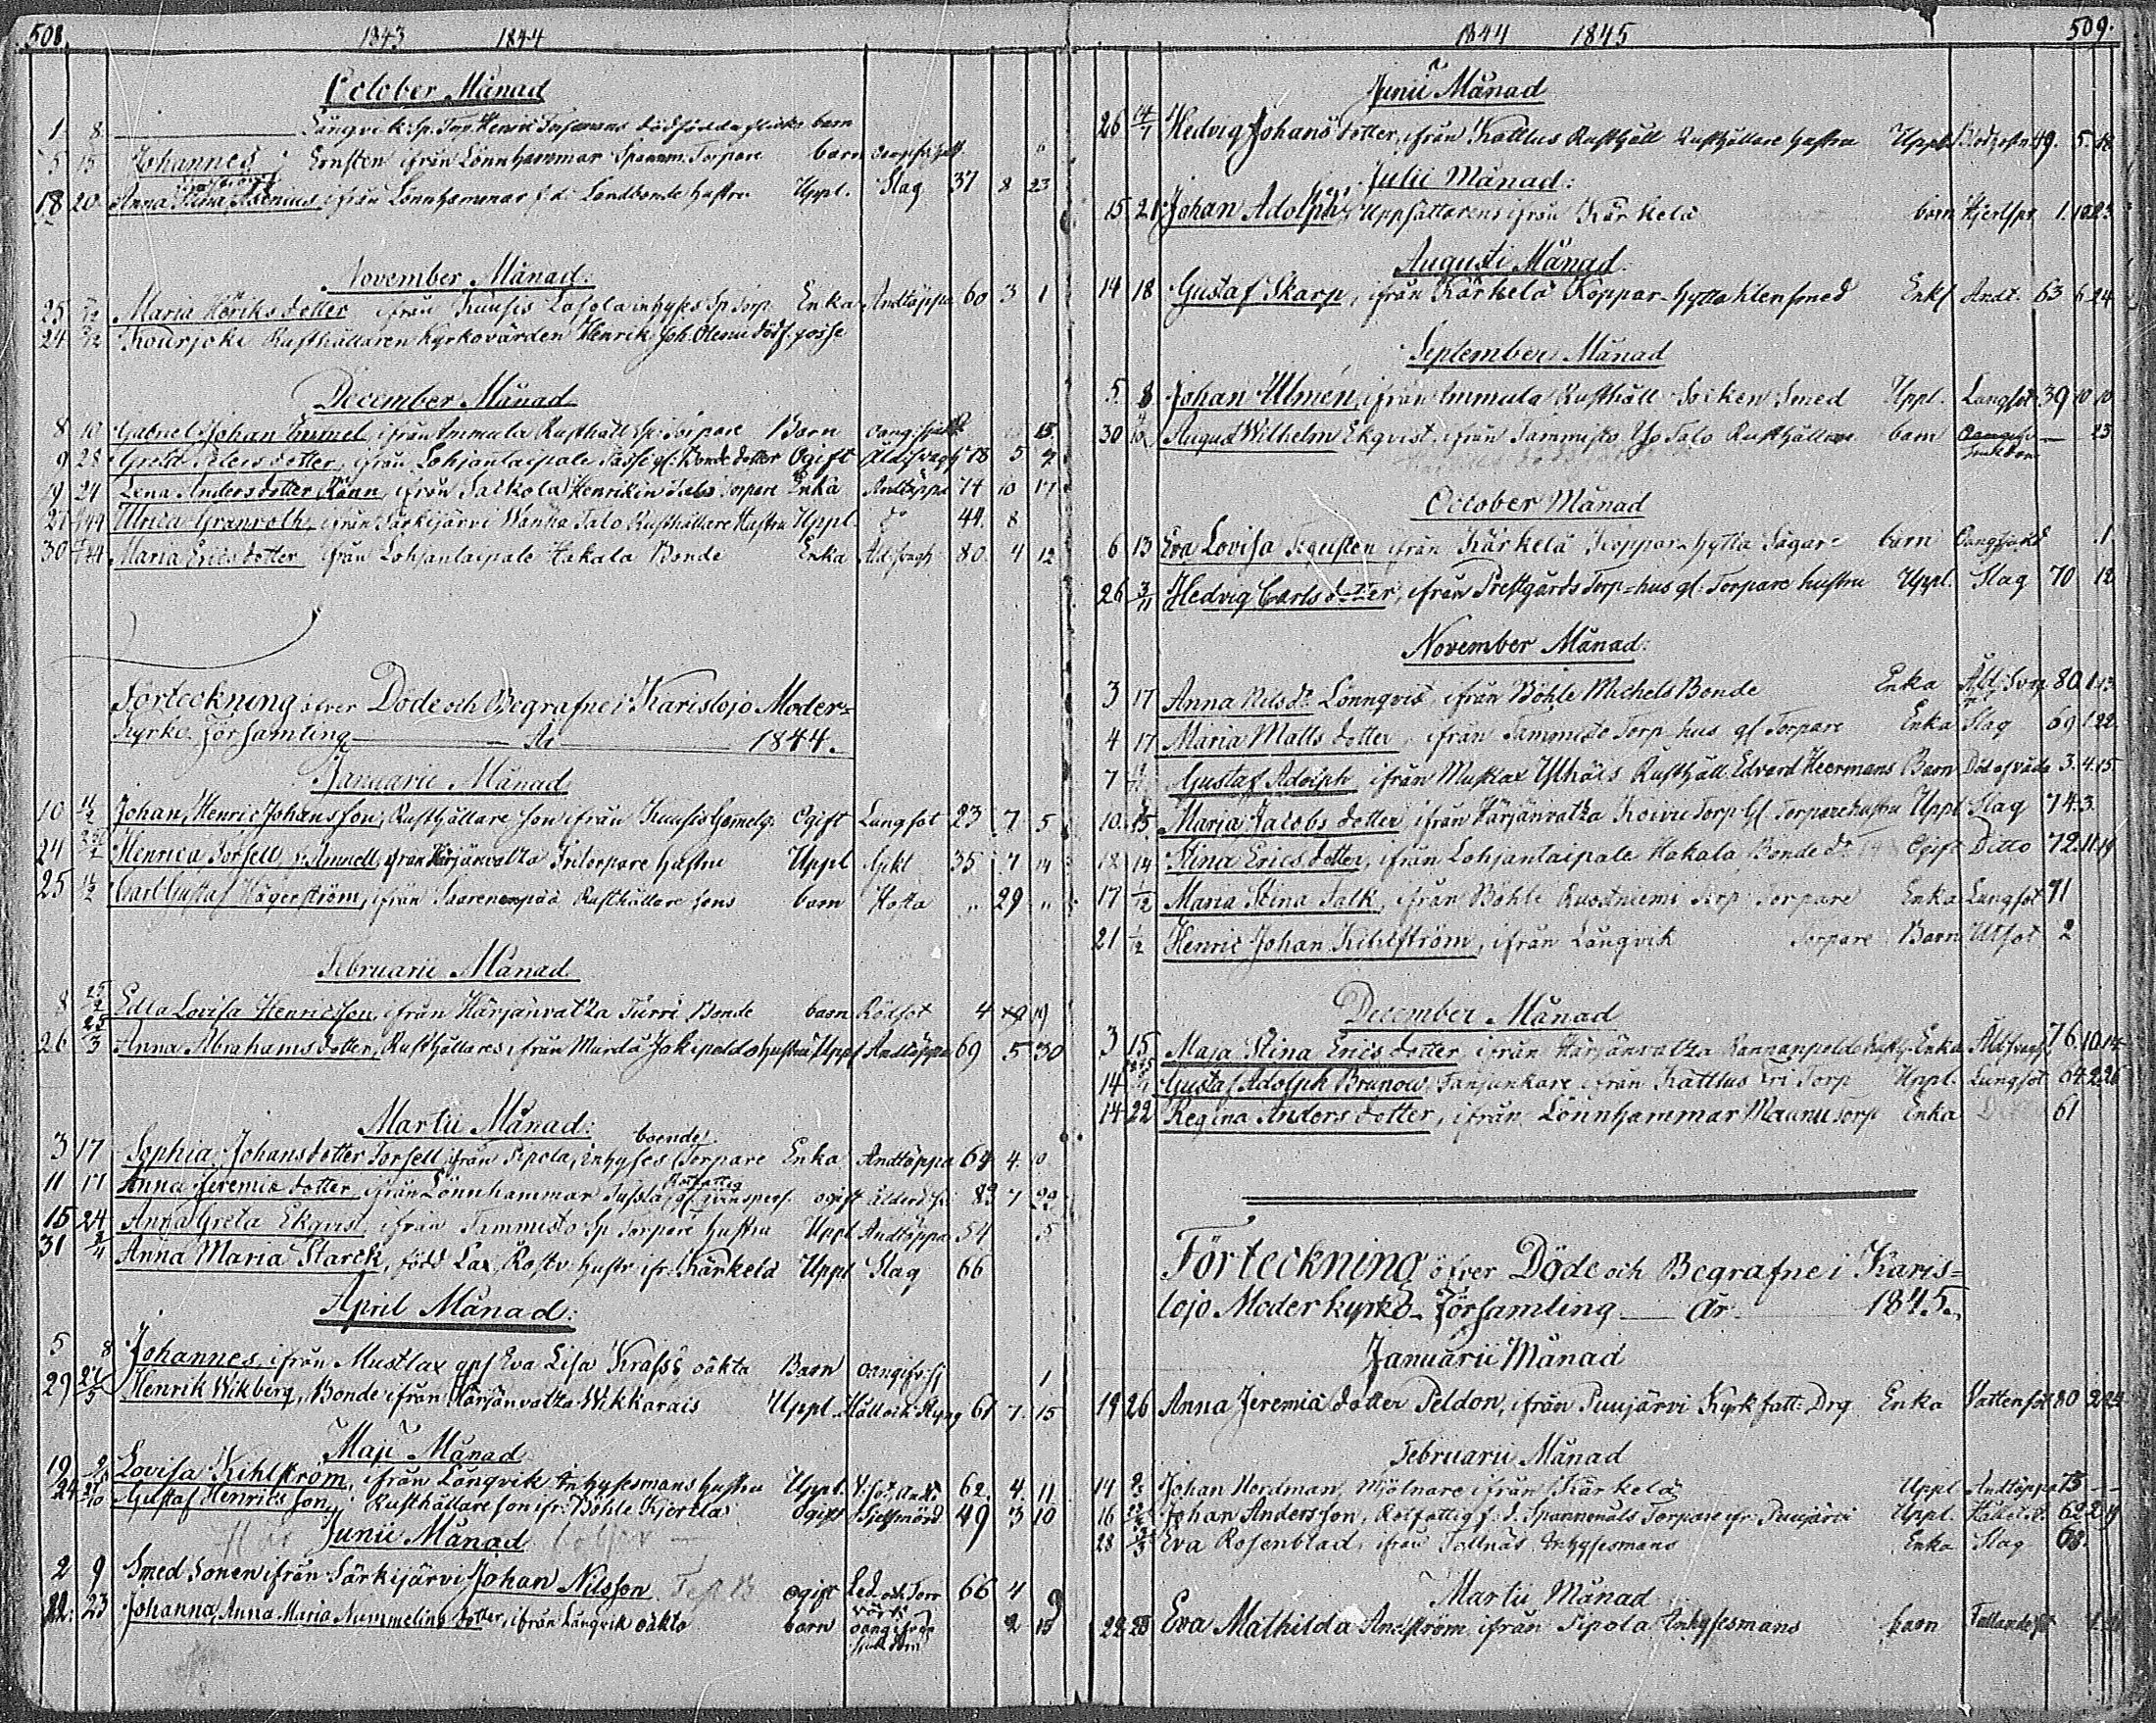 508. 1843 1844
October Månad
1 8 Långvik Sp. Torp. Henric dödfödda flicka barn
5 15 Johannes Ernsten ifrån Lönnhammar Spannm: Torpare barn
18 20 Anna Stina ifrån Lönnhammar f.d. Landbonde hustru Uppl. Slag 37 8 23
November Månad.
25 Maria Henriks dotter ifrån Kuusis Lasola inhyses Sp Torp Enka Andtäppa 60 3 1
24 3/12 Kourjoki Rusthållaren Kyrkovärden Henrik Joh. dödf. gosse
December Månad
8 10 Gabriel Johan ifrån Immula Rusthåll Sp. Torpare Barn 15.
9 28 Greta Peters dotter, ifrån Lohjantaipale Bonde dotter Ogift 78 5 7
19 24 Lena Anders dotter Rönn, ifrån Saikola Torpare Enka Andtäppa 74 10 17
21 Ulrica Granroth, ifrån Särkijärvi Wanha Talo Rusthållare Hustru Uppl. do 44. 8
30 Maria Erics dotter ifrån Lohjantaipale Hakala Bonde Enka Åld:svagh 80. 4 12
Förteckning öfver Döde och Begrafne i Karislojo Moder=
Kyrko Församling År 1844.
Januarii Månad
10 11/2 Johan Henric Johansson, Rusthållare son ifrån Kuusis Ogift Lungsot 23 7 5
24 25/2 Henrica Forsell, ifrån Härjänvatsa Torpare hustru Uppl Gikt 35 7 14
25 11/2 Carl Gustaf Hägerström, ifrån Saarenpää Rusthållare sons barn Hosta " 29 "
Februarii Månad
8 25/2 Edla Lovisa Henricsson, ifrån Härjänvatsa Turri Bonde barn Rödsot 4 19
26 25/3 Anna Abrahams dotter, Rusthållares, ifrån Murdå Jokipeldo hustru Uppl Andtäppa 69 5 30
Martii Månad:
3 17 Sophia Johans dotter Forsell ifrån Pipola, inhyses boende Torpare Enka Andtäppa 64 4. 10
11 17 Anna Jeremiæ dotter ifrån Lönnhammar Rotfattig ogift 83 7 29
15 24 Anna Greta Ekqvist, ifrån Tammisto Sp Torpare hustru Uppl Andtäppa 54 5
31 Anna Maria Starck, född Lax, hustr. ifr. Kärkelä Uppl Slag 66
April Månad:
5 8 Johannes, ifrån Mustlax Eva Lisa oäkta Barn oangifv: sj 1
29 27/5 Henrik Wikberg, Bonde ifrån Härjänvatsa Wikkarais Uppl. Håll och Styng 61 7. 15
Maji Månad
19 Lovisa Kihlström, ifrån Långvik Inhysesmans hustru Uppl. 62. 4. 11
24 Gustaf Henrics son, Rusthållare son ifr: Bohle Kjerila ogift Sjelfmord 49 3 10
Junii Månad
2 9 Smed Sonen ifrån Särkijärvi Johan Nilsson ogift 66 4 9
22: 23 Johanna, Anna Maria Nummelins dotter, ifrån Långvik oäkta barn oangifven sjukdom 2 15
1844 1845 509.
Junii Månad
26 14/7 Hedvig Johans dotter, ifrån Kattlus Rusthåll Rusthållare hustru Uppl. 49. 5. 18
Julii Månad:
15 21 Johan Adolph, Uppsättarens ifrån Kärkelä barn Hjertspr 1. 10 23
Augusti Månad
14 18 Gustaf Skarp, ifrån Kärkelä Koppar-hytta klensmed Enkl Andt. 63 6 24
September Månad
5. 8 Johan Ulmén, ifrån Immula Rusthåll Socken Smed Uppl. Lungsot 39 10 10
30 August Wilhelm Ekqvist, ifrån Tammisto Yo Talo Rusthållare barn Oangifv sjukdom 23
October Månad
6 13 Eva Lovisa ifrån Kärkelä Koppar-hytta Sågare barn .1.
26 3/11 Hedvig Carls dotter, ifrån Prestgårds Torp-hus gl. Torpare hustru Uppl. Slag 70 12
November Månad:
3 17 Anna Nils dr Lönnqvist, ifrån Böhle Michels Bonde Enka Åld. Svag 80. 1. 13
4 17 Maria Matts dotter, ifrån Tammisto Torp-hus gl Torpare Enka Slag 69 1. 22.
7 Gustaf Adolph ifrån Mustlax Ylhäis Rusthåll Edvard Heermans Barn Död af våda 3. 4. 15
10. 15 Maria Jacobs dotter, ifrån Härjänvatsa Koivu Torp Gl. Torpare hustru Uppl Slag 74 3.
18 14 Stina Erics dotter, ifrån Lohjantaipale Hakala Bonde dr Ogift Ditto 72. 11. 19
17 1/12 Maria Stina Falk, ifrån Böhle Ruodniemi Torp Torpare Enka Lungsot 71
21 1/12 Henric Johan Kihlström, ifrån Långvik Torpare Barn Utsot 2
December Månad
3 15 Maja Stina Erics dotter, ifrån Härjänvatsa Rusth. Enka Åld svagh. 76. 10. 14
14 Gustaf Adolph Brunow, Fanjunkare ifrån Kattlus Torp Uppl. Lungsot 64. 2 26
14 22 Regina Anders dotter, ifrån Lönnhammar Maanu Torp Enka 61
Förteckning öfver Döde och Begrafne i Karis=
lojo Moderkyrko-Församling år 1845.
Januarii Månad
19 26 Anna Jeremiæ dotter Peldon, ifrån Puujärvi Kyrk fatt: Drg Enka Vattensot 80 2 24
Februarii Månad
14 Johan Nordman, Mjölnare ifrån Kärkelä Uppl Andtäppa 75 — —
16 Johan Andersson, Rotfattig f.d. Spannmåls Torpare ifr. Puujärvi Uppl. 62 2 19
28 Eva Rosenblad, ifrån Tallnäs Inhysesmans Enka Slag 68.
Martii Månad
22 23 Eva Mathilda Andström ifrån Pipola Inhysesmans barn Fallandesot